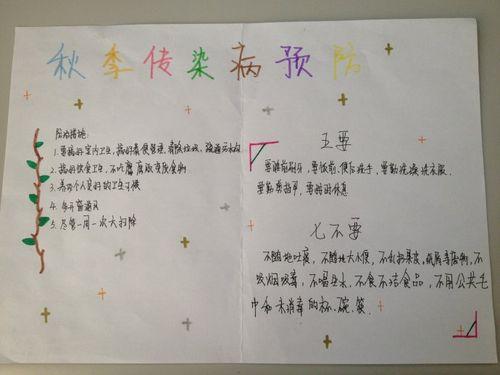 秋季传染病预防
防治措施:
1.要搞好室内卫生,搞好粪便管理,清除垃圾,疏通污水沟
2.搞好饮食卫生,不吃腐败变质食物
3.养成个人良好的卫生习惯
4.每天窗通风
5.尽管一周一次大扫除
五要
要睡前刷牙,要饭前、便后洗手,要勤洗澡洗衣服,
要勤剪指甲,要按时休息
七不要
不随地吐痰,不随地大小便,不乱扔果皮,纸屑等废物,不
吸烟喝酒,不喝生水,不食不洁食品,不用公共毛
巾和未消毒的杯、碗、筷.